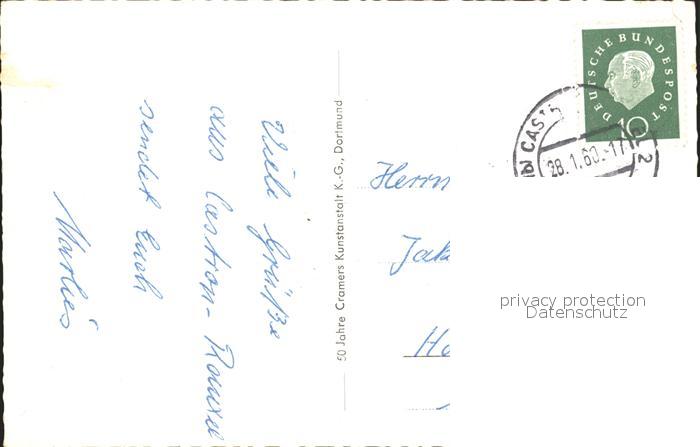 Viele Grüße
aus Castrop-Rauxel
sendet Euch
Marlies
50 Jahre Cramers Kunstanstalt K.-G., Dortmund
DEUTSCHE BUNDESPOST
10
CAST
28.1.60.-17
2
Herrn
Jak
Ho
privacy protection
Datenschutz